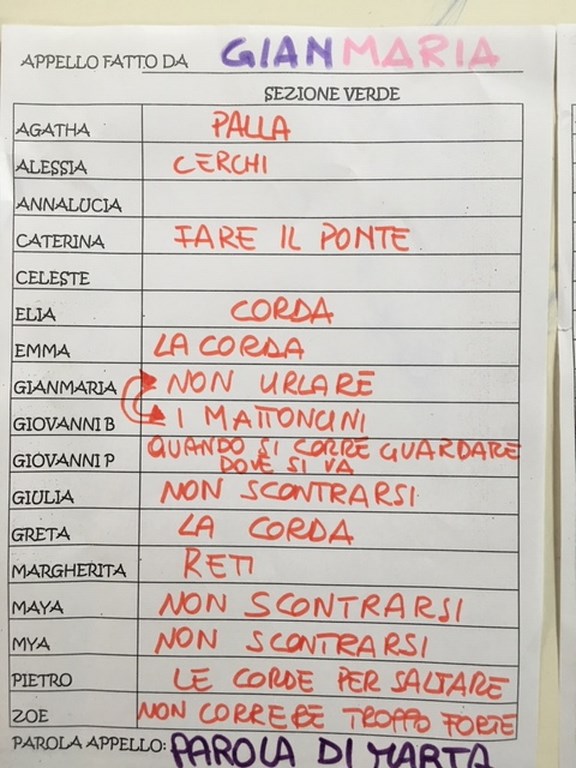 APPELLO FATTO DA GIANMARIA
SEZIONE VERDE
AGATHA PALLA
ALESSIA CERCHI
ANNALUCIA
CATERINA FARE IL PONTE
CELESTE
ELIA CORDA
EMMA LA CORDA
GIANMARIA NON URLARE
GIOVANNI B I MATTONCINI
GIOVANNI P QUANDO SI CORRE GUARDARE
DOVE SI VA
GIULIA NON SCONTRARSI
GRETA LA CORDA
MARGHERITA RETI
MAYA NON SCONTRARSI
MYA NON SCONTRARSI
PIETRO LE CORDE PER SALTARE
ZOE NON CORRERE TROPPO FORTE
PAROLA APPELLO: PAROLA DI MARTA